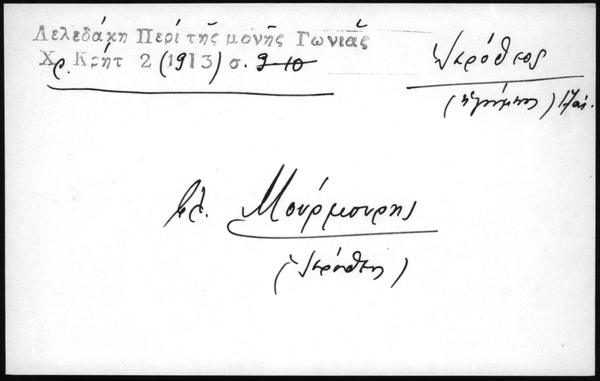 Λελεδάκη Περί τῆς μονῆς Γωνιᾶς
Χρ. Κρήτ 2 (1913) σ. 9-10
Ἱερόθεος
(ἡγούμενος)
βλ. Μούρμουρης
(Ἱερόθεος)